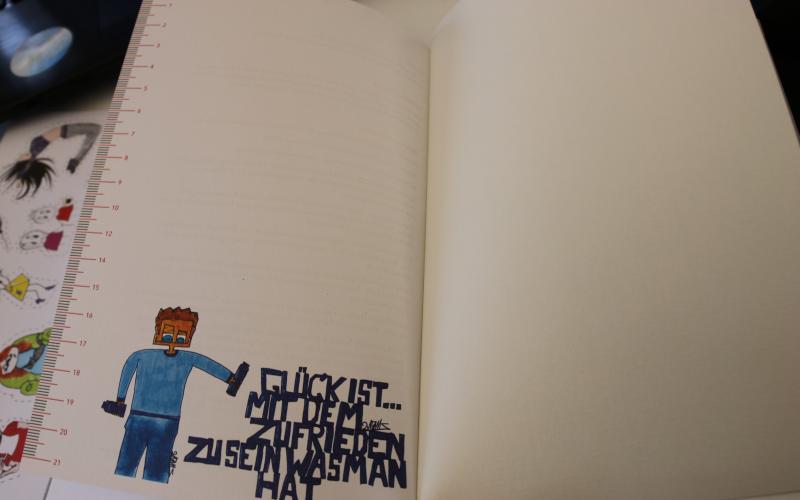 1
2
3
4
5
6
7
8
9
10
12
14
15
16
17
18
19
20
21
GLÜCK IST...
MIT DEM
ZUFRIEDEN
ZU SEIN WAS MAN
HAT